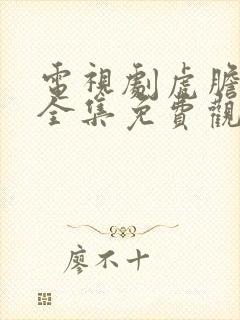 電視劇虎膽
全集免費觀
廖不十